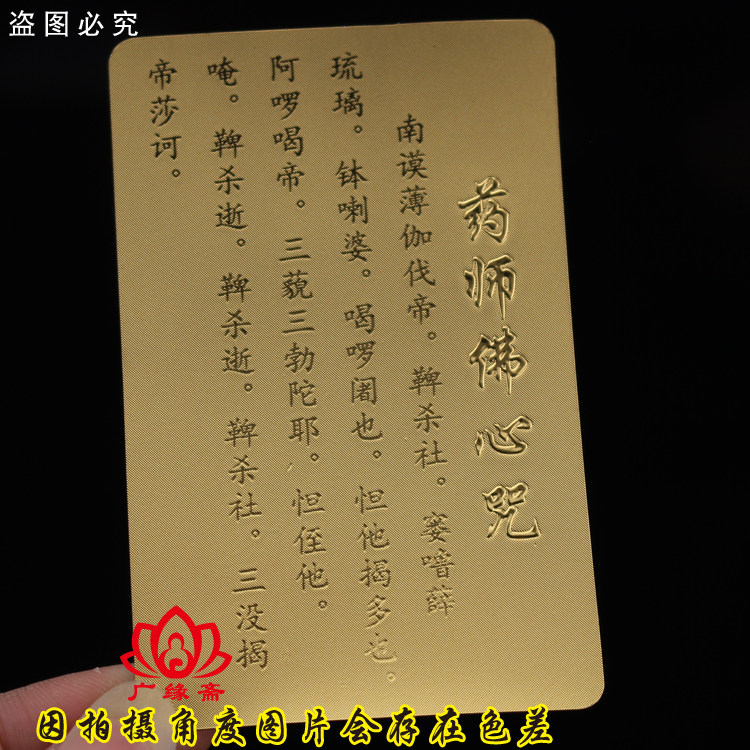 盗图必究
药师佛心咒
南谟薄伽伐帝。鞞杀社。窭噜薛
琉璃。钵喇婆。喝啰阇也。怛他揭多也。
阿啰喝帝。三藐三勃陀耶。怛侄他。
唵。鞞杀逝。鞞杀逝。鞞杀社。三没揭
帝莎诃。
广缘斋
因拍摄角度图片会存在色差